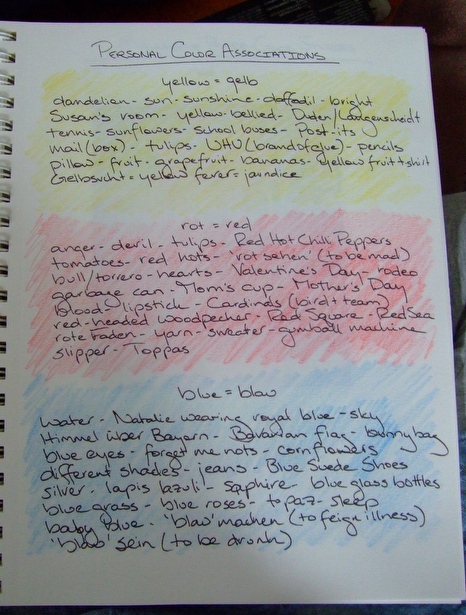 PERSONAL COLOR ASSOCIATIONS
yellow = gelb
dandelion - sun - sunshine - daffodil - bright
Susan's room - yellow-bellied - Duden/Langenscheidt
tennis - sunflowers - school buses - Post-its
mail(box) - tulips - UHU (brand of glue) - pencils
pillow - fruit - grapefruit - bananas - yellow fruit t-shirt
Gelbsucht = yellow fever = jaundice
rot = red
anger - devil - tulips - Red Hot Chili Peppers
tomatoes - red hots - 'rot sehen' (to be mad)
bull/torrero - hearts - Valentine's Day - rodeo
garbage can - Mom's cup - Mother's Day
blood - lipstick - Cardinals (bird + team)
red-headed woodpecker - Red Square - Red Sea
rote Faden - yarn - sweater - gumball machine
slipper - Toppas
blue = blau
water - Natalie wearing royal blue - sky
Himmel über Bayern - Bavarian flag - bunny bag
blue eyes - forget me nots - cornflowers
different shades - jeans - Blue Suede Shoes
silver - lapis lazuli - saphire - blue glass bottles
blue grass - blue roses - topaz - sleep
baby blue - 'blau' machen (to feign illness)
'blau' sein (to be drunk)